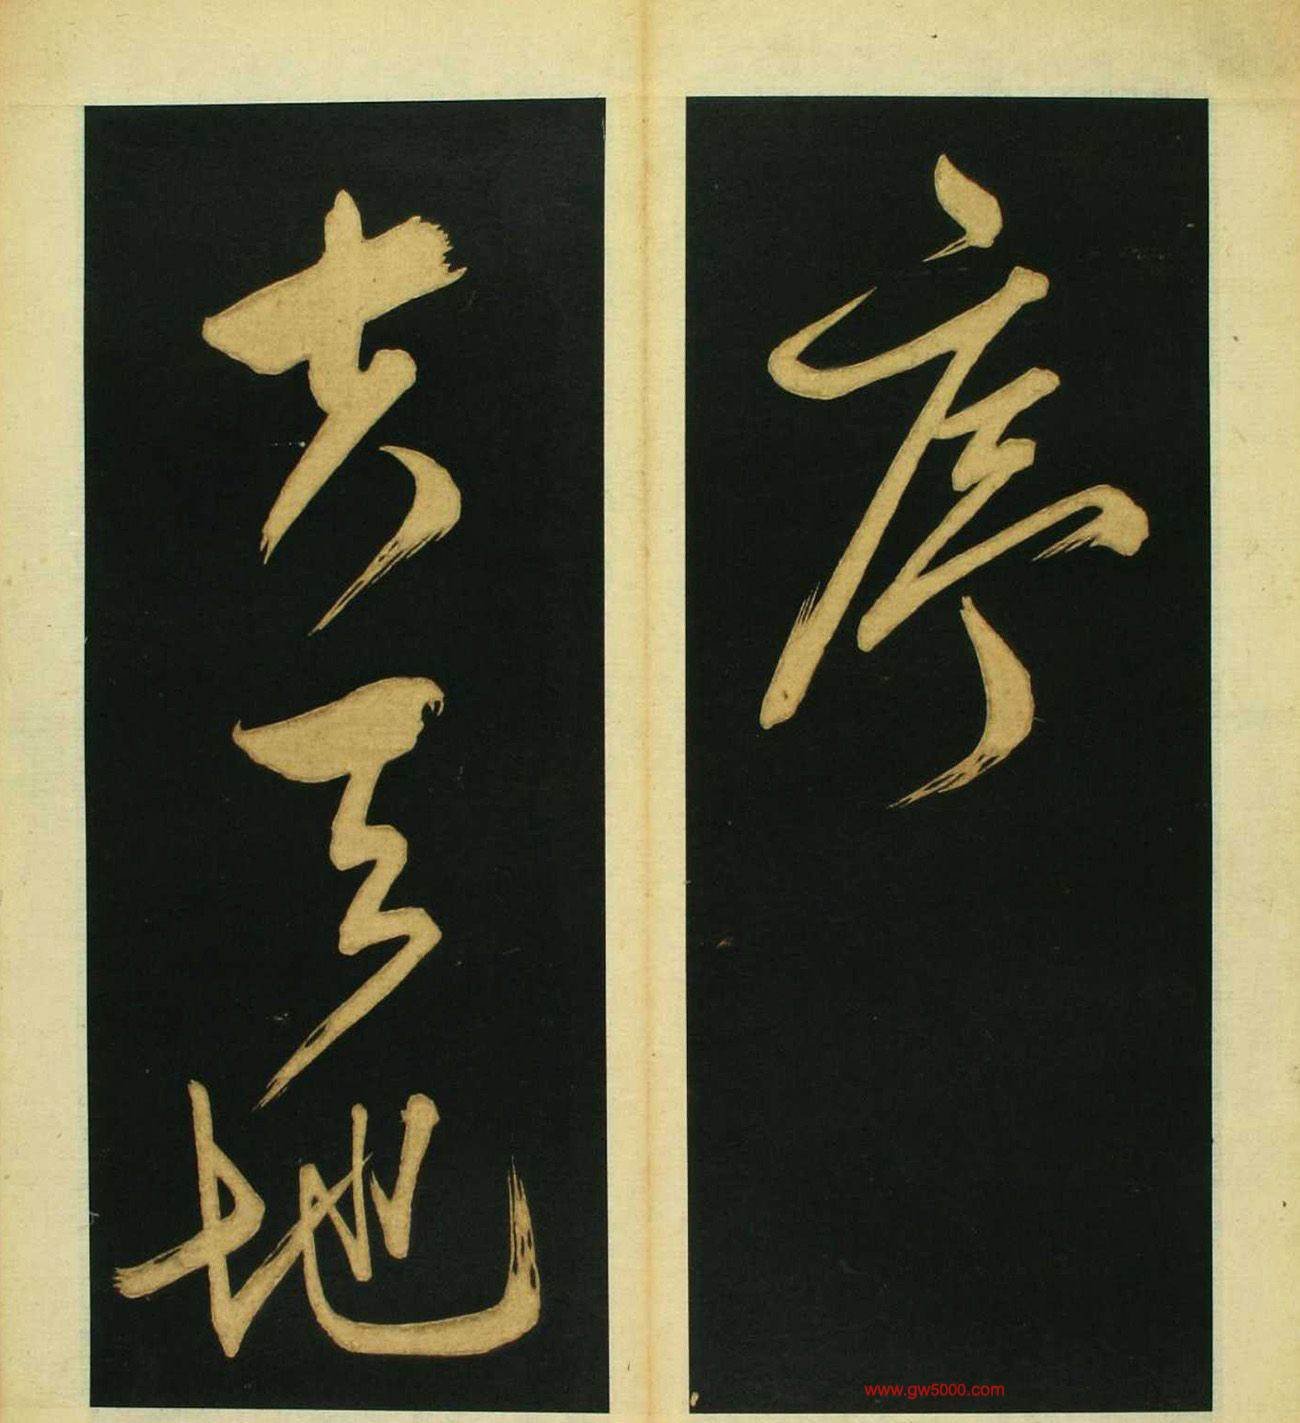 序
夫天地
www.gw5000.com